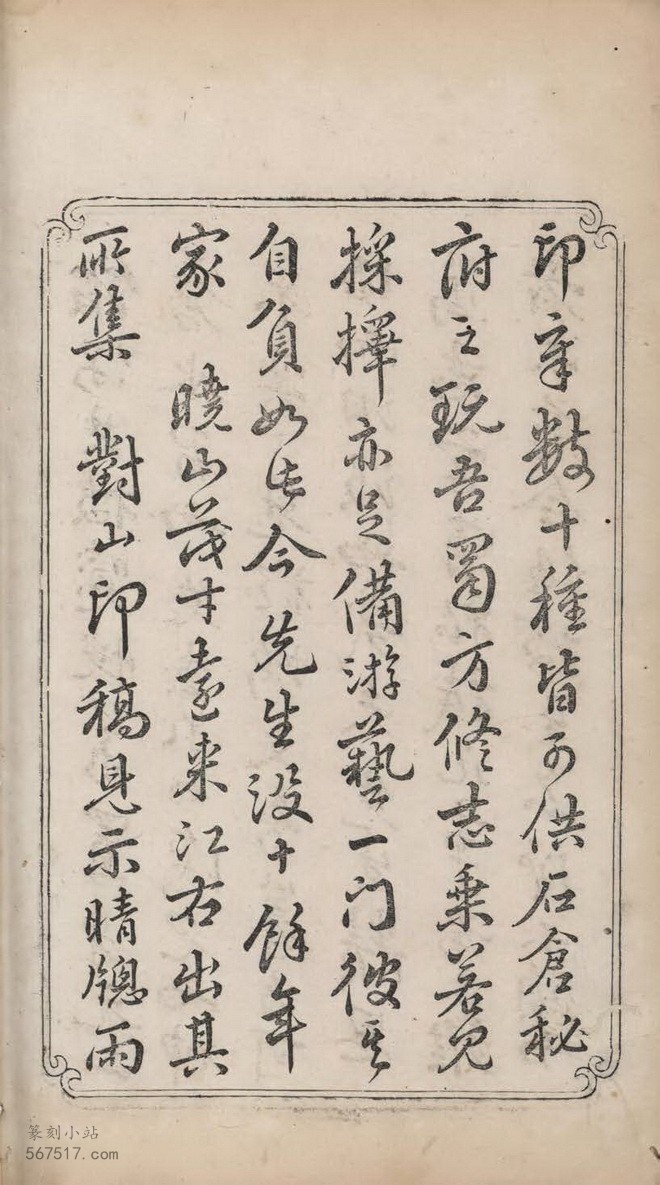 印章數十種皆可供石倉秘
府之玩吾蜀方修志乘若見
採擇亦足備游藝一門彼其
自負如此今先生沒十餘年
家 曉山茂才遠來江右出其
所集 對山印稿見示晴牕雨
篆刻小站
567517.com